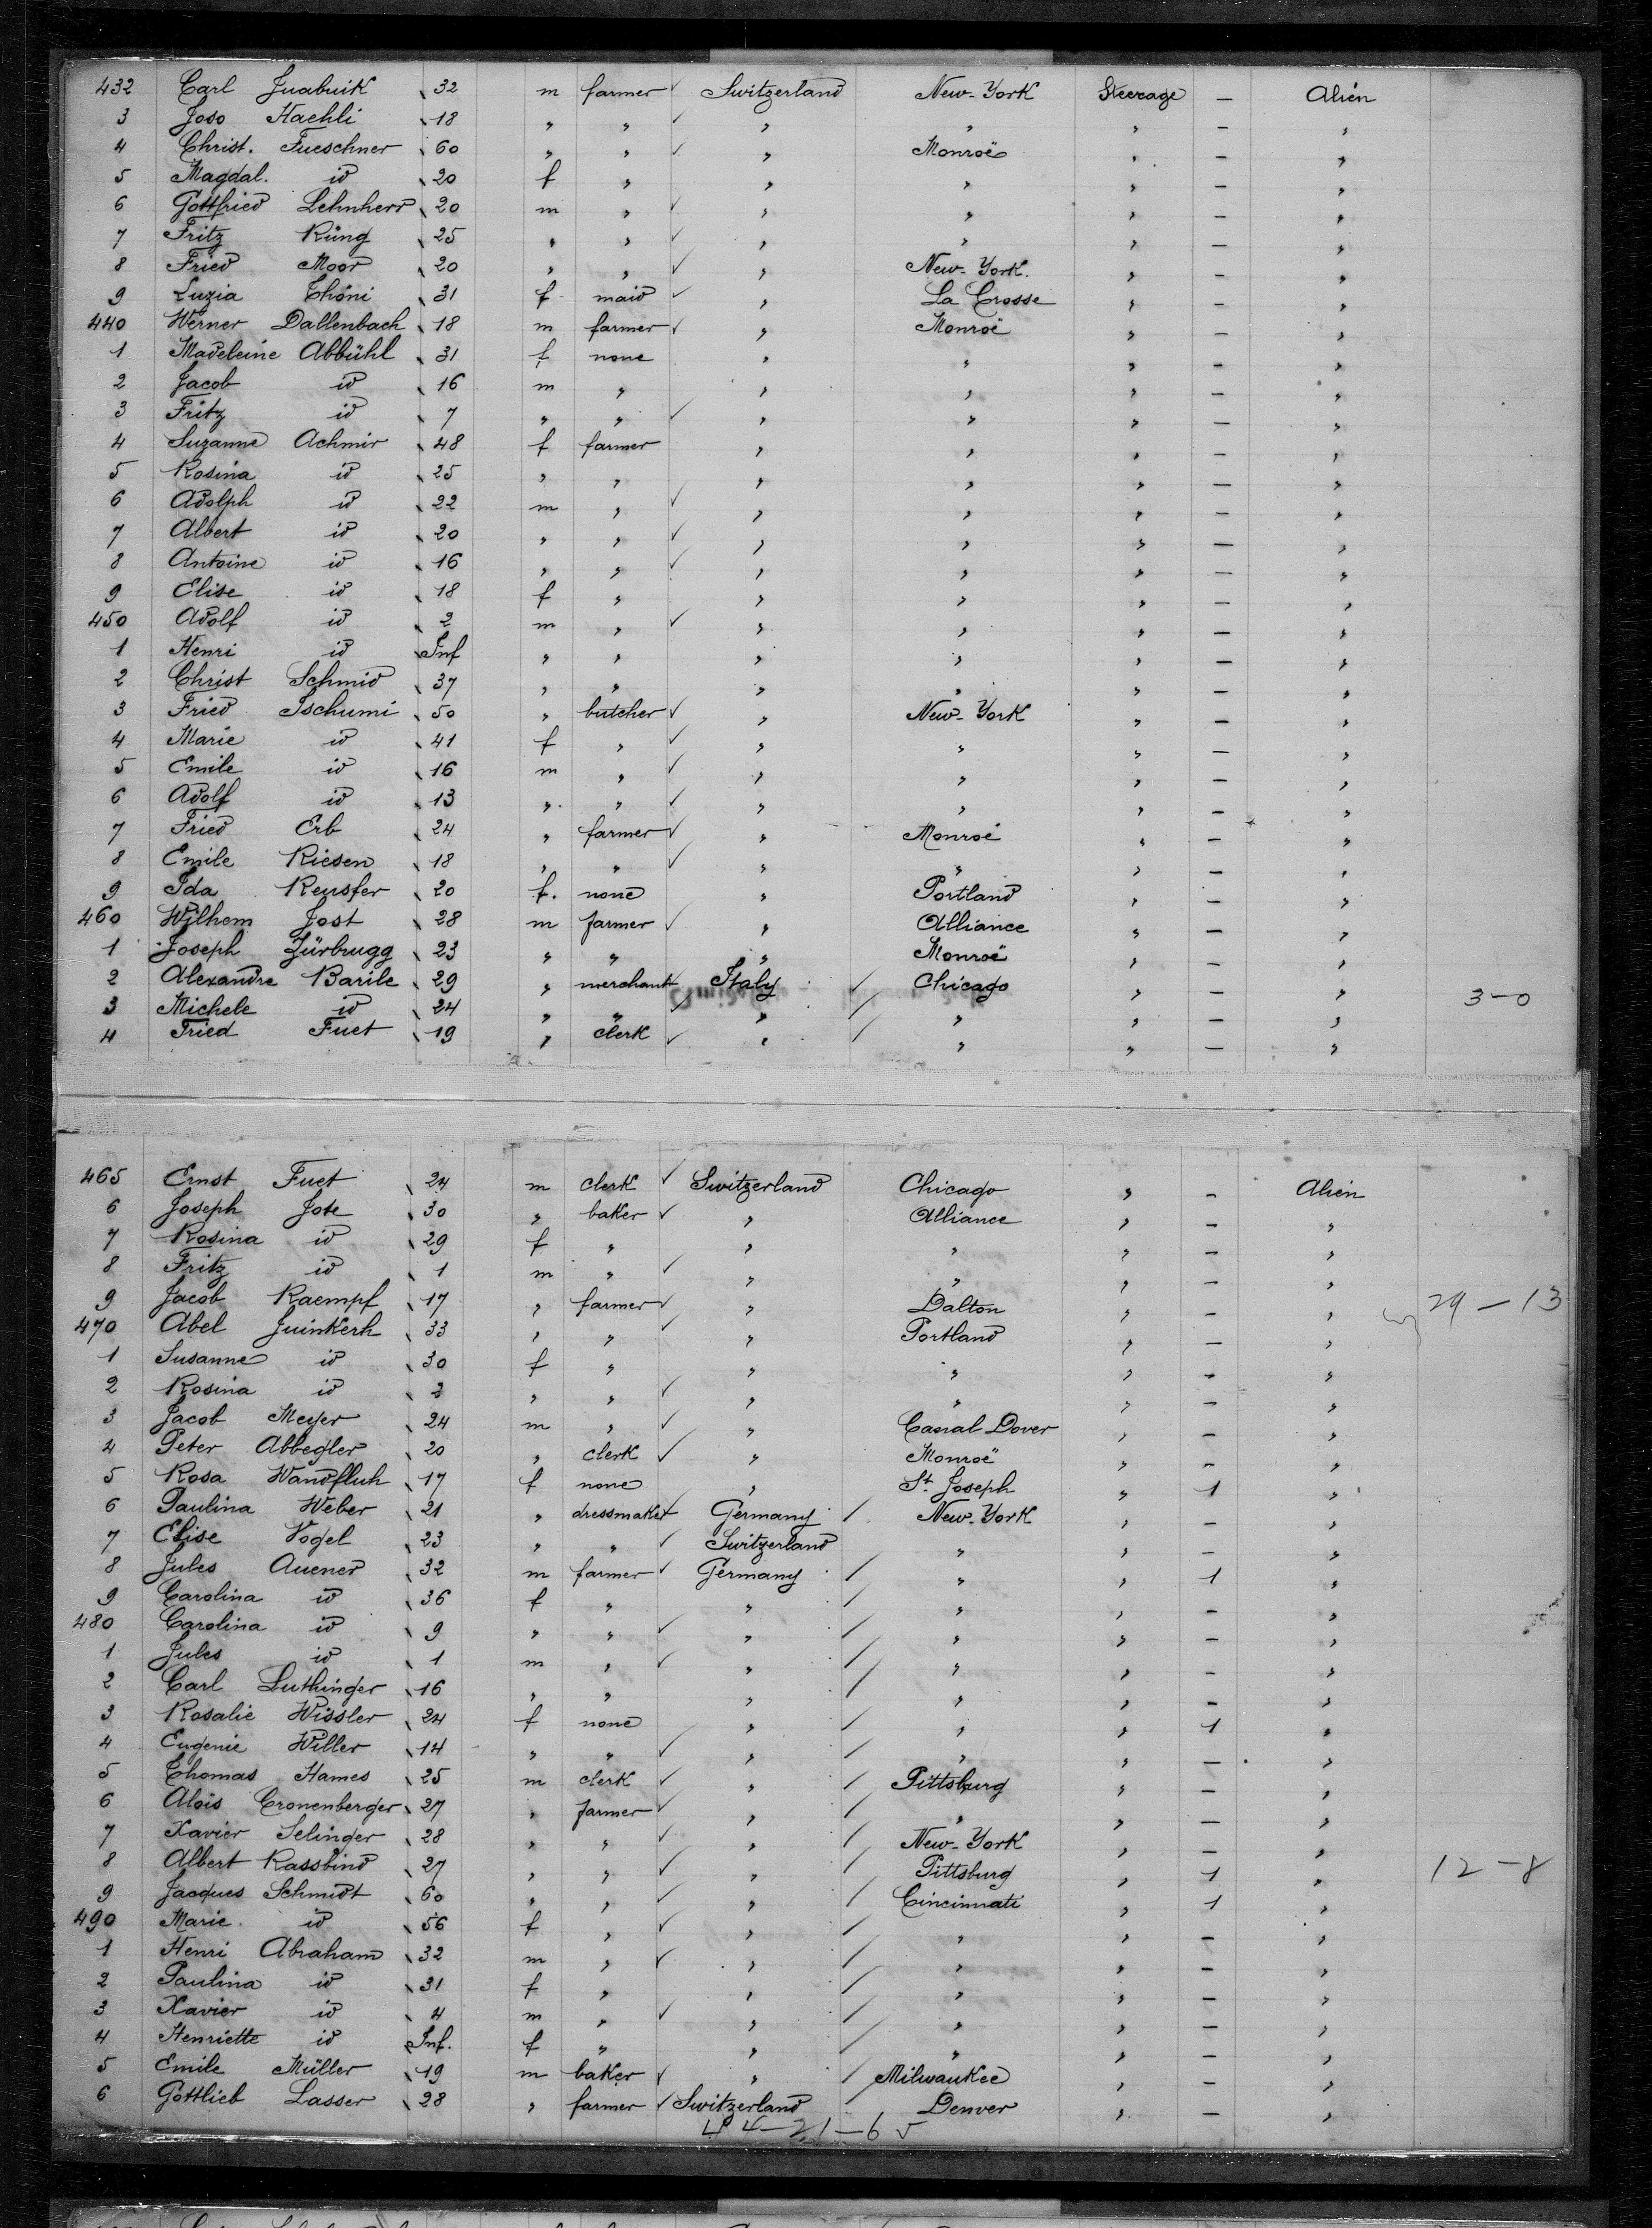 432 Carl Juabnik 32 m farmer ✓ Switzerland New-York Steerage – Alien
3 Joso Haehli 18 " " ✓ " " " – "
4 Christ. Fueschner 60 " " ✓ " Monroë " – "
5 Magdal. id 20 f " " " " – "
6 Gottfried Lehnherr 20 m " ✓ " " " – "
7 Fritz Küng 25 " " ✓ " " " – "
8 Fried Moor 20 " " ✓ " New-York. " – "
9 Luzia Thöni 31 f maid ✓ " La Crosse " – "
440 Werner Dallenbach 18 m farmer ✓ " Monroë " – "
1 Madeleine Abbühl 31 f none " " " – "
2 Jacob id 16 m " " " " – "
3 Fritz id 7 " " ✓ " " " – "
4 Suzanne Achmir 48 f farmer " " " – "
5 Rosina id 25 " " " " " – "
6 Adolph id 22 m " ✓ " " " – "
7 Albert id 20 " " ✓ " " " – "
8 Antoine id 16 " " ✓ " " " – "
9 Elise id 18 f " " " " – "
450 Adolf id 2 m " ✓ " " " – "
1 Henri id Inf " " " " " – "
2 Christ Schmid 37 " " " " " – "
3 Fried Tschumi 50 " butcher ✓ " New-York " – "
4 Marie id 41 f " ✓ " " " – "
5 Emile id 16 m " ✓ " " " – "
6 Adolf id 13 " " ✓ " " " – "
7 Fried Erb 24 " farmer ✓ " Monroë " – "
8 Emile Riesen 18 " " ✓ " " " – "
9 Ida Reusfer 20 f. none " Portland " – "
460 Wilhem Jost 28 m farmer ✓ " Alliance " – "
1 Joseph Zürbrugg 23 " " " Monroë " – "
2 Alexandre Barile 29 " merchant ✓ Italy ✓ Chicago " – "
3 Michele id 24 " " ✓ " / " " – " 3–0
4 Fried Fuet 19 " clerk ✓ " / " " – "
465 Ernst Fuet 24 m clerk ✓ Switzerland Chicago " – Alien
6 Joseph Jote 30 " baker ✓ " Alliance " – "
7 Rosina id 29 f " " " " – "
8 Fritz id 1 m " ✓ " " " – "
9 Jacob Kaempf 17 " farmer ✓ " Dalton " – " 29–13
470 Abel Juinkerh 33 " " ✓ " Portland " – "
1 Susanne id 30 f " " " " – "
2 Rosina id 2 " " ✓ " " " – "
3 Jacob Meyer 24 m " ✓ " Canal Dover " – "
4 Peter Abbegler 20 " clerk ✓ " Monroë " – "
5 Rosa Wandfluh 17 f none " St. Joseph " 1 "
6 Paulina Weber 21 " dressmaker ✓ Germany / New-York " – "
7 Elise Vogel 23 " " ✓ Switzerland " " – "
8 Jules Auener 32 m farmer ✓ Germany / " " 1 "
9 Carolina id 36 f " " / " " – "
480 Carolina id 9 " " ✓ " / " " – "
1 Jules id 1 m " ✓ " / " " – "
2 Carl Luthinger 16 " " " / " " – "
3 Rosalie Wissler 24 f none " / " " 1 "
4 Eugenie Willer 14 " " ✓ " / " " – "
5 Thomas Hames 25 m clerk ✓ " / Pittsburg " – "
6 Alois Cronenberger 27 " farmer ✓ " / " " – "
7 Xavier Selinger 28 " " ✓ " / New-York " – "
8 Albert Kassbind 27 " " ✓ " / Pittsburg " 1 " 12–8
9 Jacques Schmidt 60 " " ✓ " / Cincinnati " 1 "
490 Marie id 56 f " ✓ " / " " – "
1 Henri Abraham 32 m " ✓ " / " " – "
2 Paulina id 31 f " " / " " – "
3 Xavier id 4 m " ✓ " / " " – "
4 Henriette id Inf. f " " / " " – "
5 Emile Müller 19 m baker ✓ " / Milwaukee " – "
6 Gottlieb Lasser 28 " farmer ✓ Switzerland Denver " – "
44–21–65